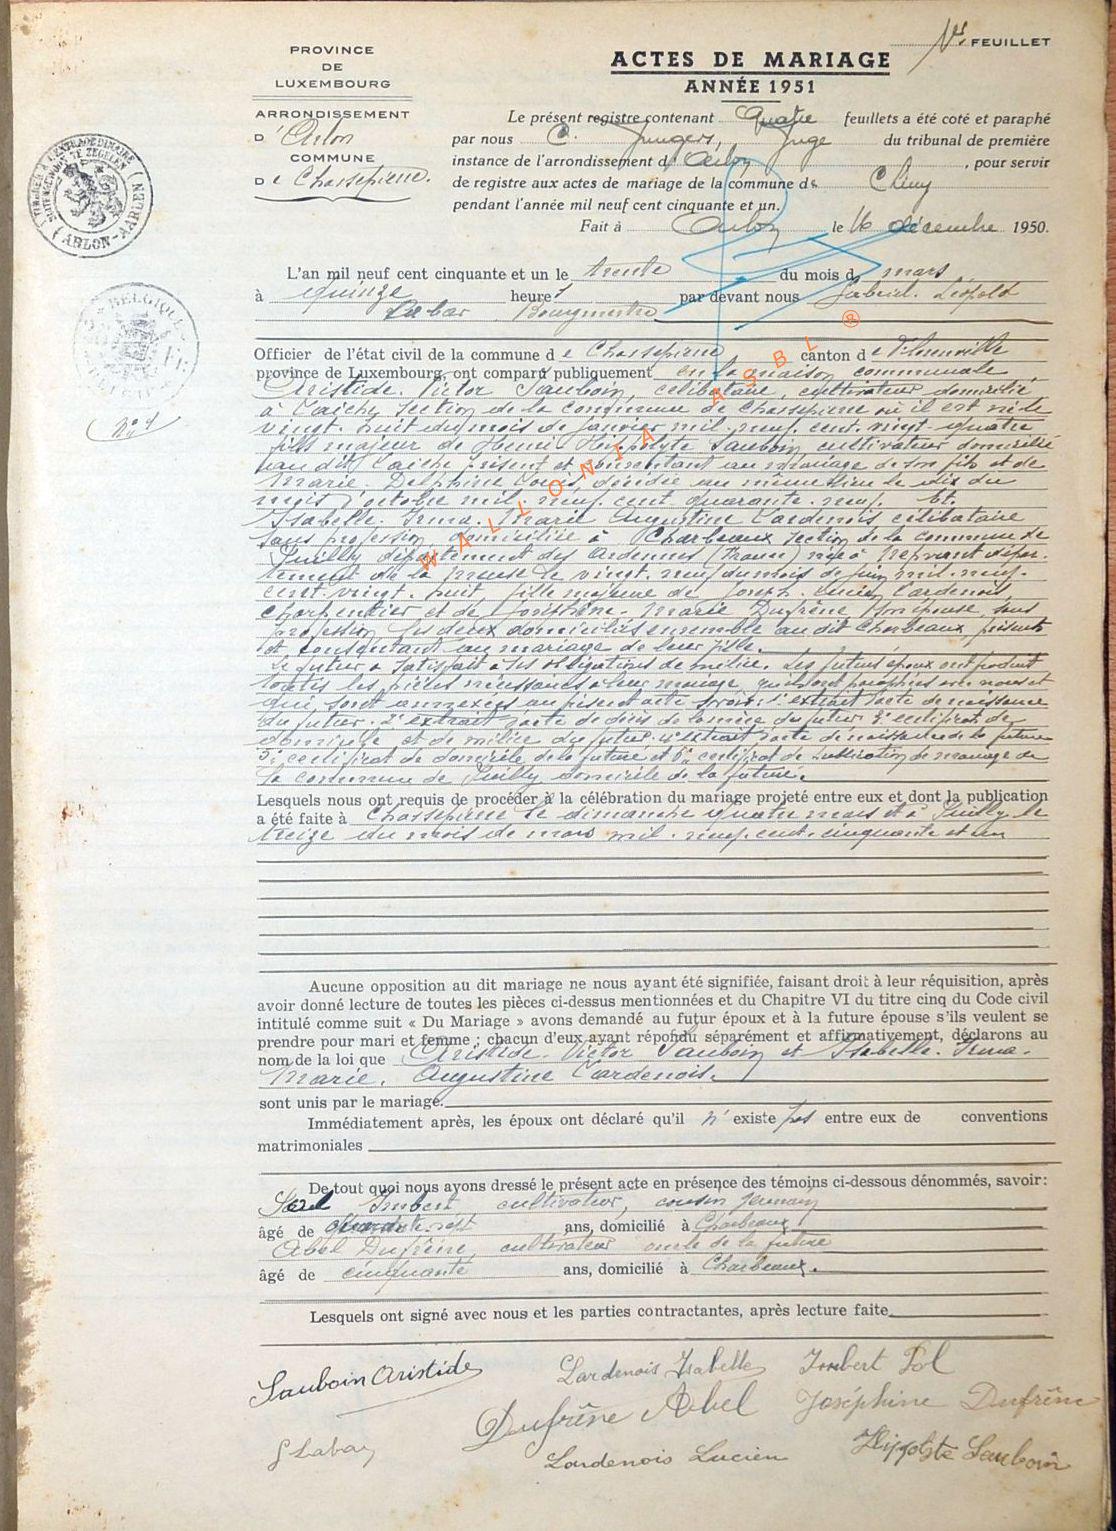 1er FEUILLET
PROVINCE
DE
LUXEMBOURG
ACTES DE MARIAGE
ANNÉE 1951
ARRONDISSEMENT
D'Arlon
COMMUNE
De Chassepierre.
Le présent registre contenant Quatre feuillets a été coté et paraphé
par nous C. Jungers, Juge du tribunal de première
instance de l'arrondissement d'Arlon, pour servir
de registre aux actes de mariage de la commune de Chiny
pendant l'année mil neuf cent cinquante et un.
Fait à Arlon le 16 décembre 1950.
ARLON-AARLEN
BELGIQUE
L'an mil neuf cent cinquante et un le trente du mois de mars
à quinze heures par devant nous Gabriel. Léopold
Labar Bourgmestre
Officier de l'état civil de la commune de Chassepierre canton de Florenville
province de Luxembourg, ont comparu publiquement en la maison communale
Aristide. Victor Sauboin, célibataire, cultivateur domicilié
à Laiche, section de la commune de Chassepierre où il est né le
vingt. huit du mois de janvier mil. neuf. cent. vingt. quatre
fils majeur de Henri Hippolyte Sauboin, cultivateur domicilié
au dit Laiche présent et consentant au mariage de son fils et de
Marie. Delphine décédée au même lieu le dix du
mois d'octobre mil. neuf. cent. quarante. neuf. Et.
Isabelle. Irma. Marie Augustine Lardenois célibataire
sans profession domiciliée à Charbeaux section de la commune de
Puilly département des Ardennes (France) née à dépar-
tement de la Meuse le vingt. neuf du mois de juin mil. neuf.
cent. vingt. huit fille majeure de Joseph. Lucien Lardenois
charpentier et de Joséphine. Marie Dufrêne son épouse, sans
profession, les deux domiciliés ensemble au dit Charbeaux, présents
et consentant au mariage de leur fille.
Le futur a satisfait à ses obligations de milice. Les futurs époux ont produit
toutes les pièces nécessaires à leur mariage qui sont paraphées avec nous et
qui sont annexées au présent acte savoir: 1° extrait d'acte de naissance
du futur. 2° extrait d'acte de décès de la mère du futur 3° certificat de
domicile et de milice du futur. 4° extrait d'acte de naissance de la future
5° certificat de domicile de la future et 6° certificat de publication de mariage de
la commune de Puilly domicile de la future.
Lesquels nous ont requis de procéder à la célébration du mariage projeté entre eux et dont la publication
a été faite à Chassepierre le dimanche quatre mars et à Puilly le
treize du mois de mars mil. neuf. cent. cinquante et un
Aucune opposition au dit mariage ne nous ayant été signifiée, faisant droit à leur réquisition, après
avoir donné lecture de toutes les pièces ci-dessus mentionnées et du Chapitre VI du titre cinq du Code civil
intitulé comme suit « Du Mariage » avons demandé au futur époux et à la future épouse s'ils veulent se
prendre pour mari et femme ; chacun d'eux ayant répondu séparément et affirmativement, déclarons au
nom de la loi que Aristide. Victor Sauboin et Isabelle. Irma.
Marie. Augustine Lardenois.
sont unis par le mariage.
Immédiatement après, les époux ont déclaré qu'il n'existe pas entre eux de conventions
matrimoniales
De tout quoi nous avons dressé le présent acte en présence des témoins ci-dessous dénommés, savoir:
Imbert cultivateur, cousin germain
âgé de quarante sept ans, domicilié à Charbeaux
Abel Dufrêne, cultivateur oncle de la future
âgé de cinquante ans, domicilié à Charbeaux.
Lesquels ont signé avec nous et les parties contractantes, après lecture faite
Sauboin Aristide Lardenois Isabelle Imbert Pol
Dufrêne Abel Joséphine Dufrêne
G Labar Lardenois Lucien Hippolyte Sauboin
WALLONIA ASBL ®